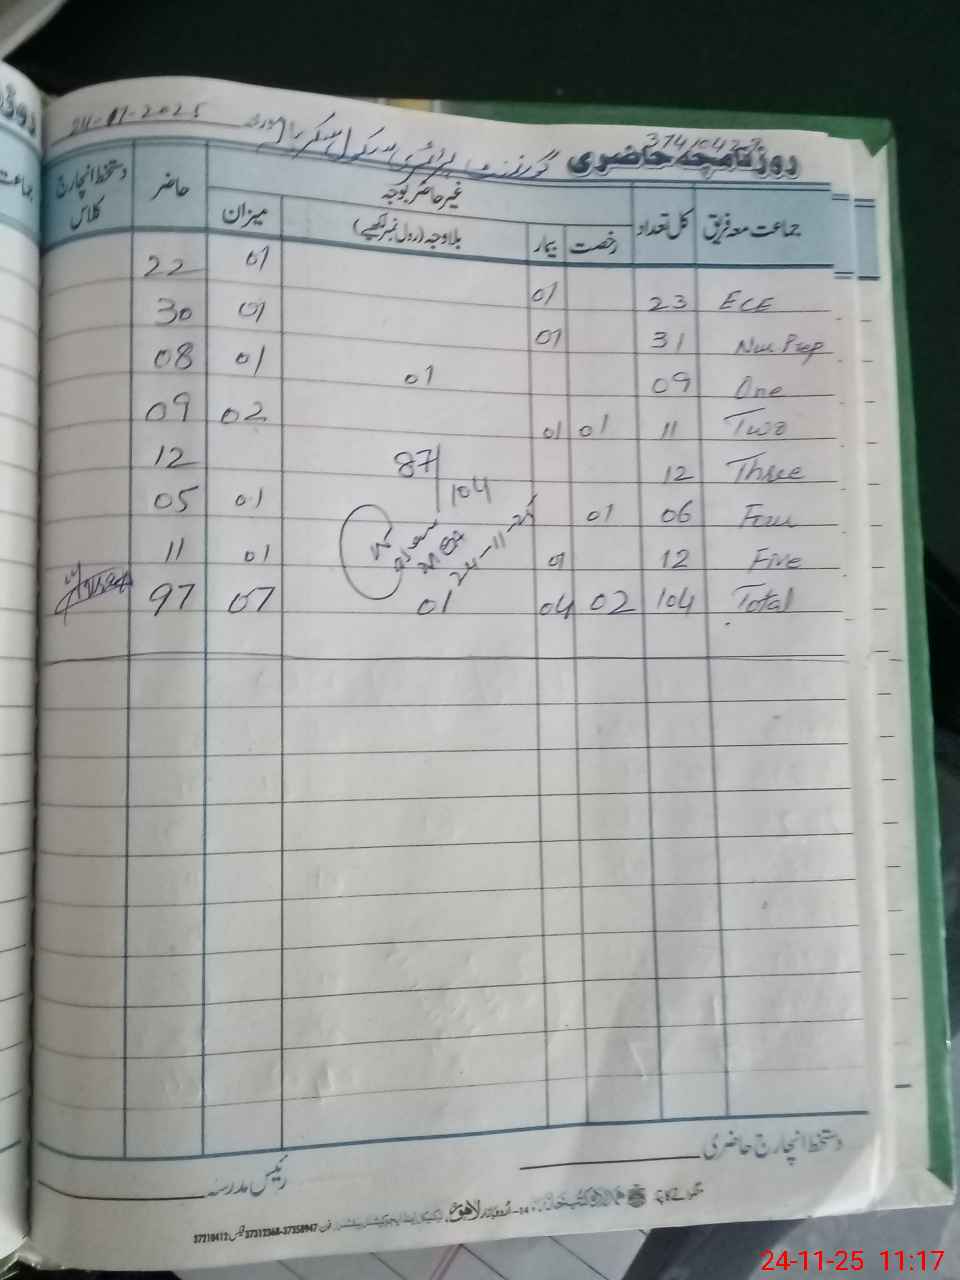 37410427
روزنامچہ حاضری گورنمنٹ پرائمری سکول مورخہ 24-11-2025
جماعت معہ فریق کل تعداد غیر حاضر بوجہ حاضر دستخط انچارج کلاس
رخصت بیمار بلاوجہ (رول نمبر لکھیے) میزان
ECE 23 01 01 22
Nur. Prep 31 01 01 30
One 09 01 01 08
Two 11 01 01 02 09
Three 12 12
Four 06 01 01 05
Five 12 01 01 11
Total 104 02 04 01 07 97
87/104
24-11-25
دستخط انچارج حاضری
رئیس مدرسہ
منگوانے کا پتہ
14-اردو بازار لاہور
فون 37358947-37312368 فیکس 37210412
24-11-25 11:17